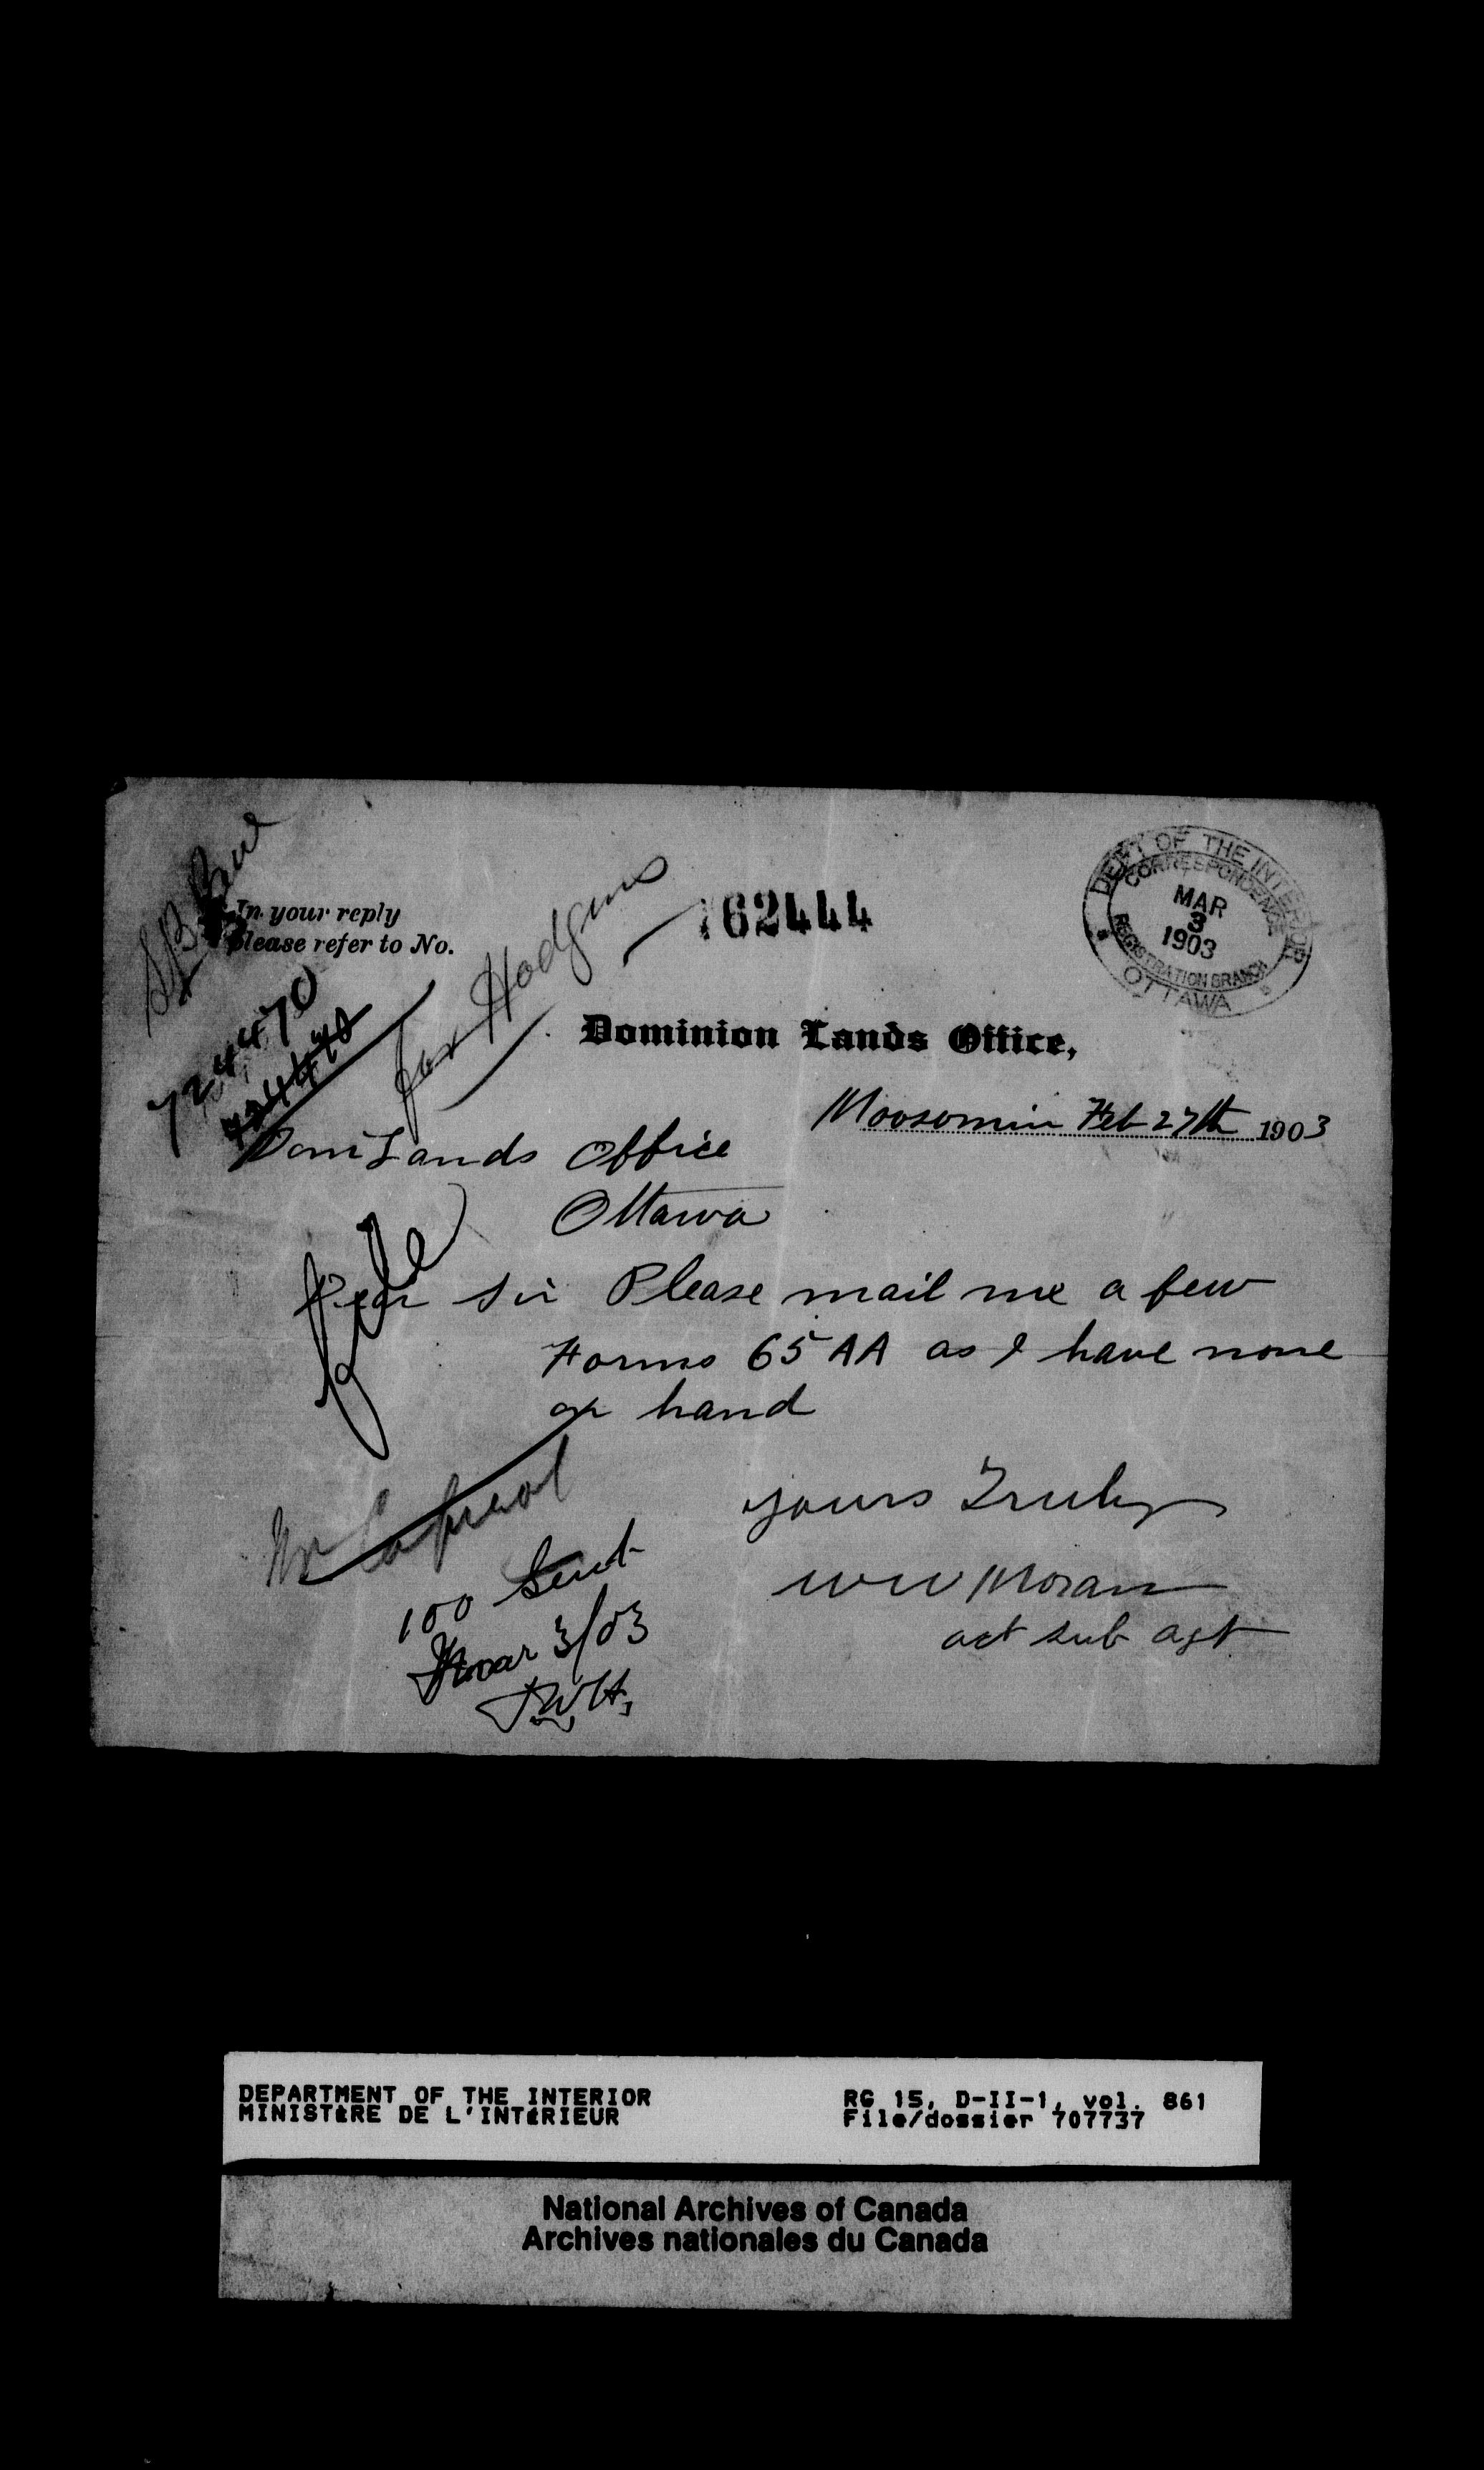 In your reply
please refer to No.
762444
DEPT OF THE INTERIOR
CORRESPONDENCE
MAR
3
1903
REGISTRATION BRANCH
OTTAWA
724470
724470
for Hodgins
Dominion Lands Office,
Moosomin Feb 27th 1903
Dom Lands Office
Ottawa
file
Dear Sir Please mail me a few
Forms 65 AA as I have none
on hand
Yours Truly
WW Moran
act sub agt
Mr
100 Sent
Mar 3/03
DEPARTMENT OF THE INTERIOR
MINISTÈRE DE L'INTÉRIEUR
RG 15, D-II-1, vol. 861
File/dossier 707737
National Archives of Canada
Archives nationales du Canada